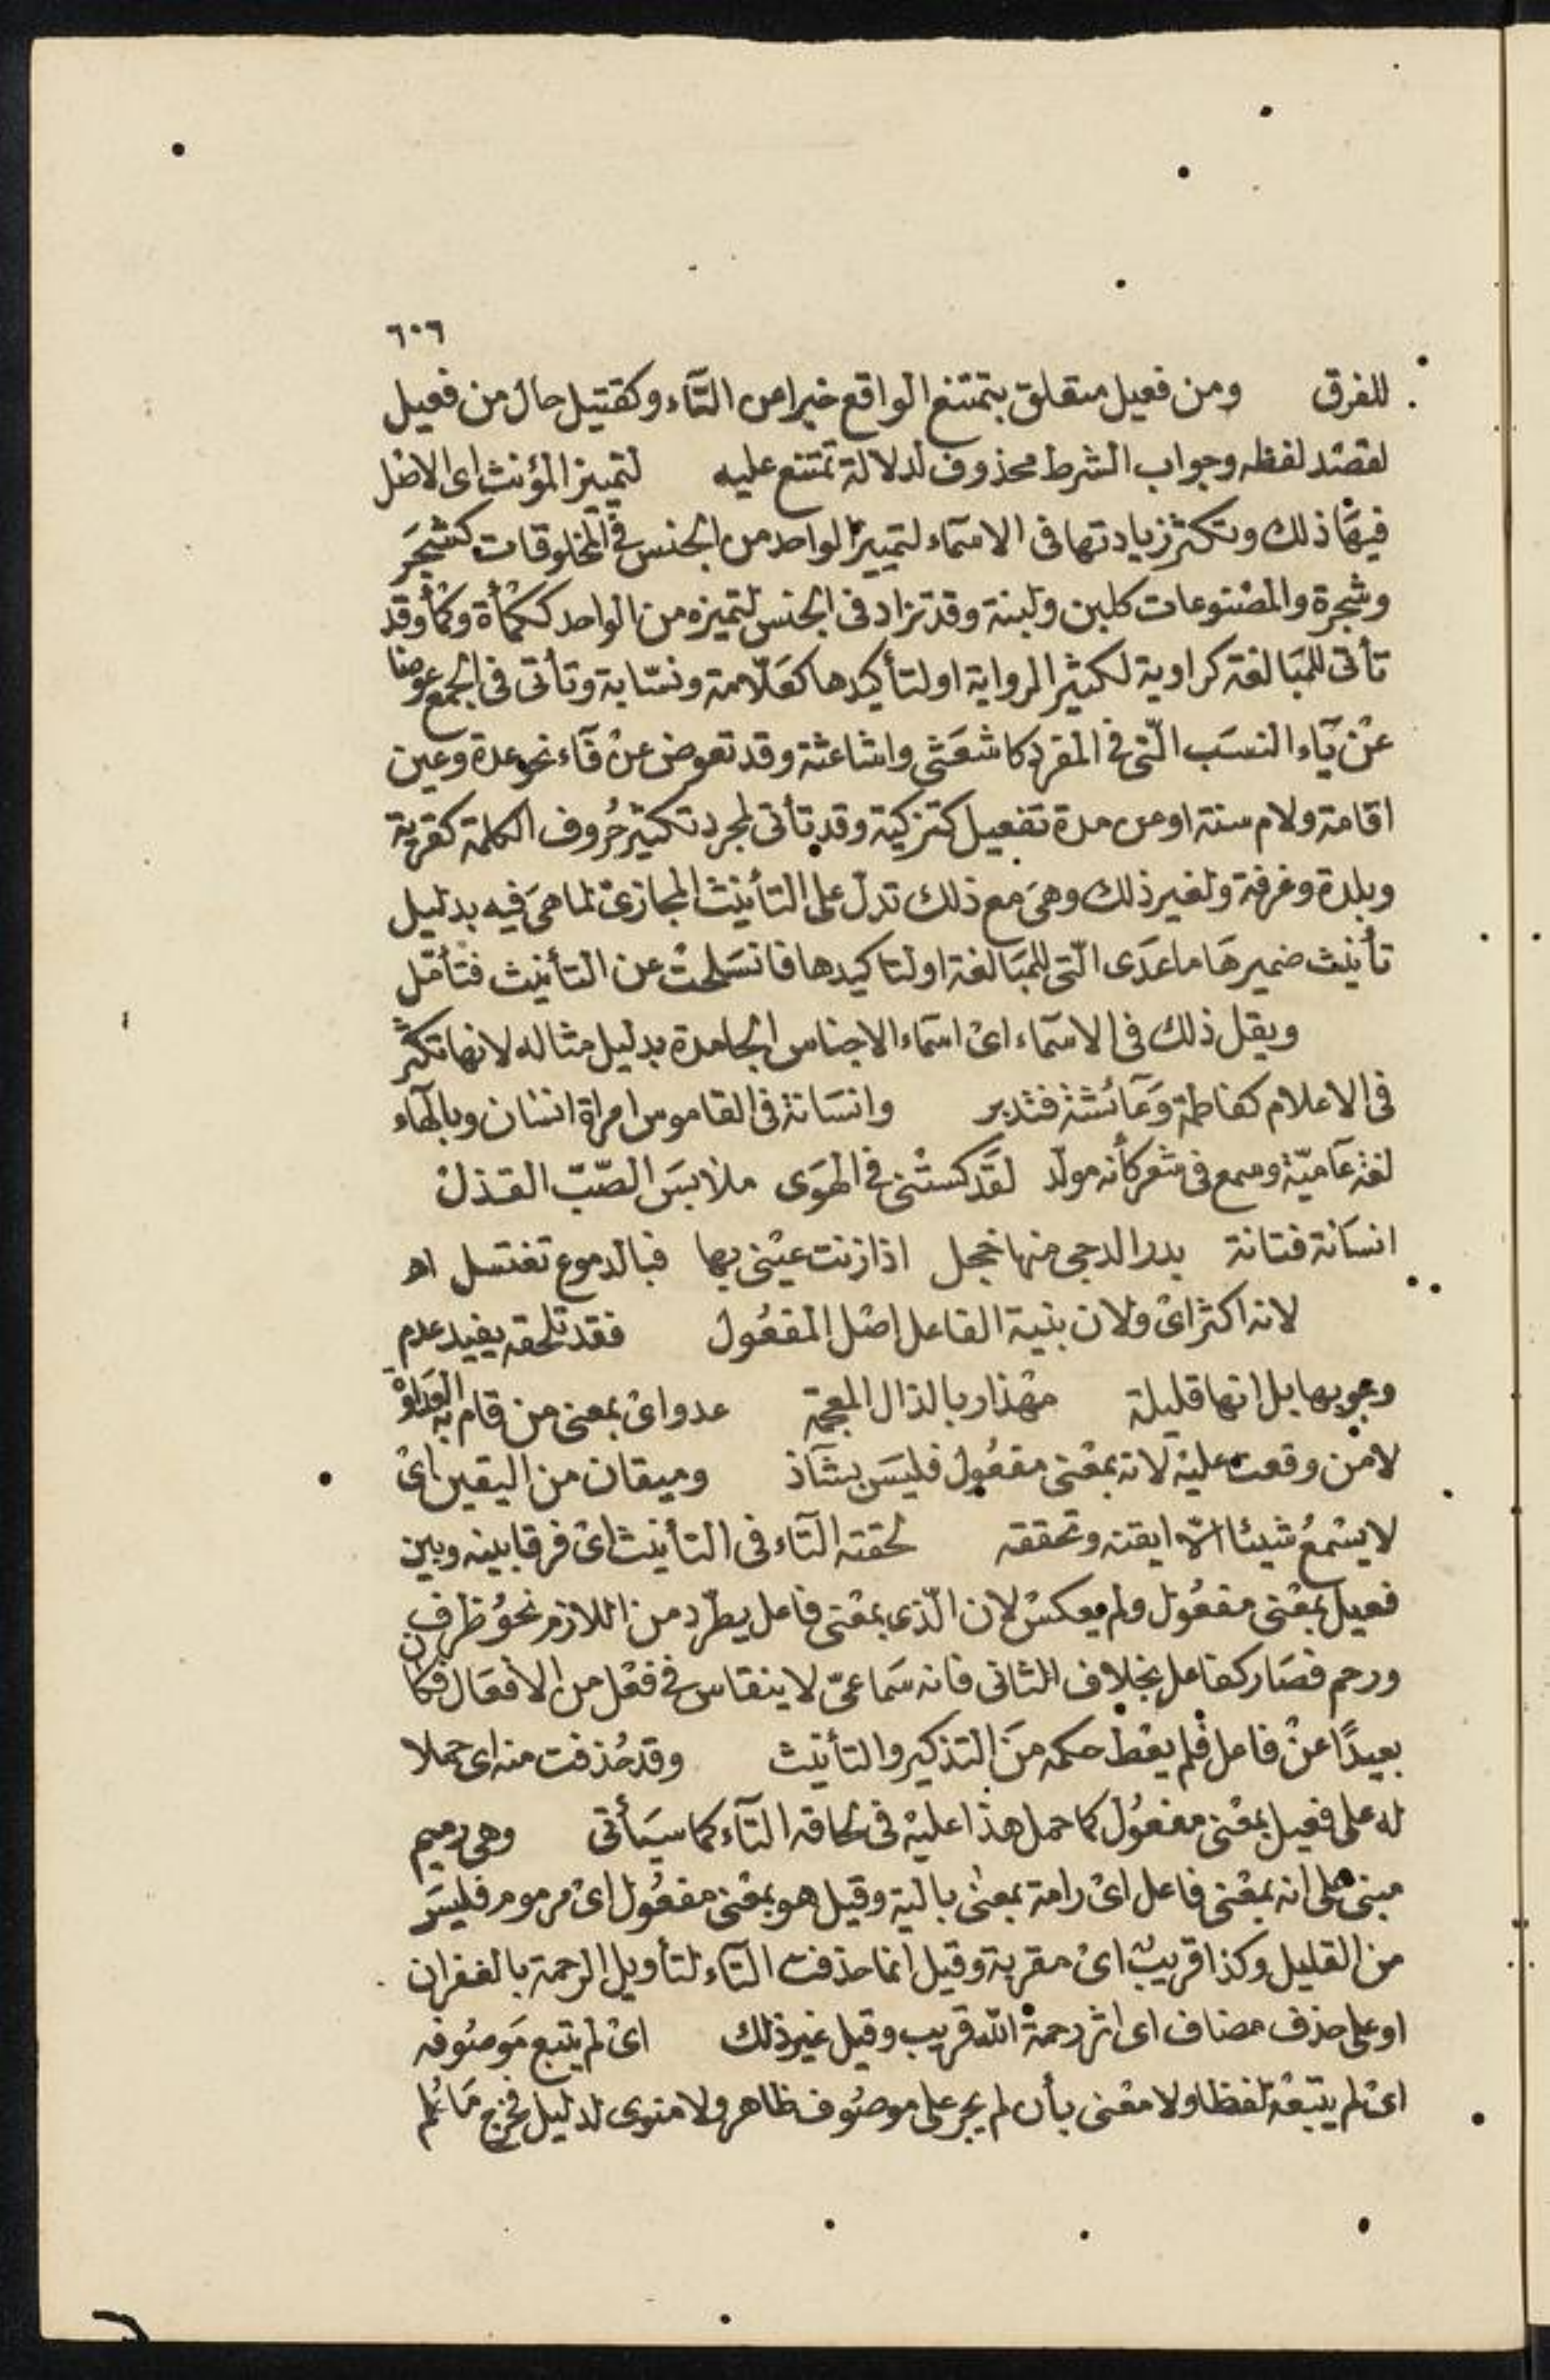 ٦٠٦
للفرق ومن فعيل متعلق بتمتنع الواقع خبرا من التآء وكقتيل حال من فعيل
لقصد لفظه وجواب الشرط محذوف لدلالة تمتنع عليه لتمييز المؤنث اى الاصل
فيها ذلك وتكثر زيادتها فى الاسمآء لتمييز الواحد من الجنس فى المخلوقات كشجر
وشجرة والمصنوعات كلبن ولبنة وقد تزاد فى الجنس لتميزه من الواحد ككمأة وكمأ وقد
تأتى للمبالغة كراوية لكثير الرواية او لتأكيدها كعلّامة ونسّابة وتأتى فى الجمع عوضا
عن يآء النسب الّتى فى المفرد كاشعثى واشاعثة وقد تعوض عن فآء نحو عدة وعين
اقامة ولام سنة او من مدة تفعيل كتزكية وقد تأتى لمجرد تكثير حُروف الكلمة كقرية
وبلدة وغرفة ولغير ذلك وهى مع ذلك تدل على التأنيث المجازى لما هى فيه بدليل
تأنيث ضميرها ما عدى الّتى للمبالغة او لتاكيدها فانسلخت عن التأنيث فتأمّل
ويقل ذلك فى الاسمآء اى اسمآء الاجناس الجامدة بدليل مثاله لانها تكثر
فى الاعلام كفاطمة وعآئشة فتدبر وانسانة فى القاموس امراة انسان وبالهآء
لغة عآميّة وسمع فى شعر كأنه مولّد لقد كستنى فى الهوى ملابس الصّبّ الغزل
انسانة فتانة بدر الدجى منها خجل اذا زنت عينى بها فبالدموع تغتسل اهـ
لانه اكثر اى ولان بنية الفاعل اصل المفعُول فقد تلحقه يفيد عدم
وجوبها بل انها قليلة مهذار بالذال المعجمة عدو اى بمعنى من قام به العداوة
لا من وقعت عليه لانه بمعنى مفعُول فليس بشآذ وميقان من اليقين اى
لا يسمعُ شيئا الّا ايقنه وتحققه لحقته التآء فى التأنيث اى فرقا بينه وبين
فعيل بمعنى مفعُول ولم يعكس لان الّذى بمعنى فاعل يطّرد من اللازم نحوُ ظرف
ورحم فصار كفاعل بخلاف الثانى فانه سماعىّ لا ينقاس فى فعل من الافعال فكان
بعيدًا عن فاعل فلم يعط حكمه من التذكير والتأنيث وقد حُذفت منه اى حملا
له على فعيل بمعنى مفعُول كما حمل هذا عليه فى لحاقه التآء كما سيأتى وهى رميم
مبنى على انه بمعنى فاعل اى رامة بمعنى بالية وقيل هو بمعنى مفعُول اى مرموم فليس
من القليل وكذا قريب اى مقربة وقيل انما حذفت التآء لتأويل الرحمة بالغفران
او على حذف مضاف اى اثر رحمة الله قريب وقيل غير ذلك اى لم يتبع موصُوفه
اى لم يتبعه لفظا ولا معنى بأن لم يجر على موصُوف ظاهر ولا منوى لدليل فخرج ما لم